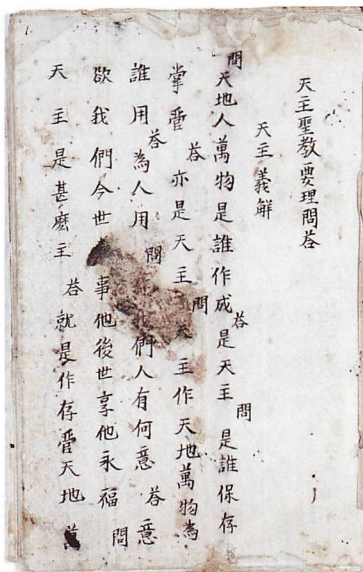 天主聖教要理問答
天主義觧
問天地人萬物是誰作成答是天主問是誰保存
掌管答亦是天主問天主作天地萬物為
誰用答為人用問我們人有何意答意
欲我們今世事他後世享他永福問
天主是甚麽主答就是作存管天地萬